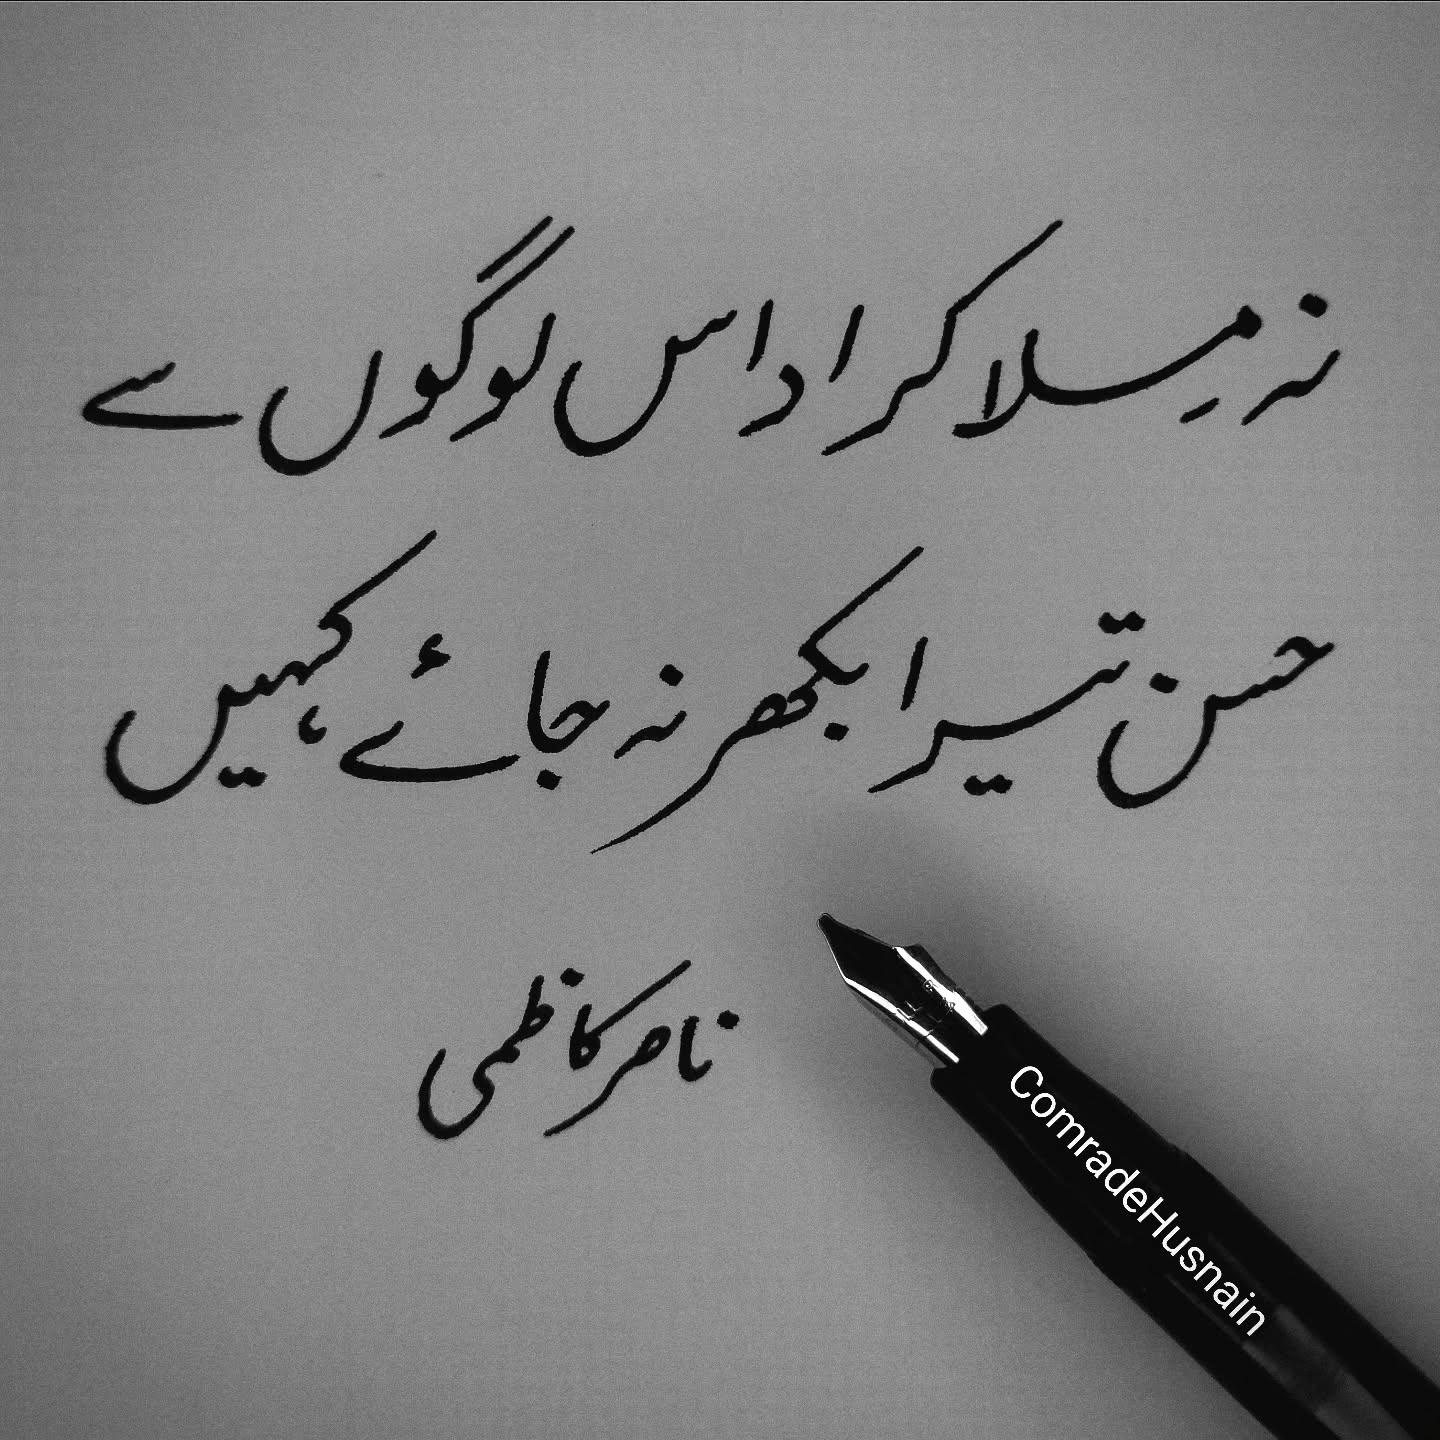 نہ مِلا کر اداس لوگوں سے
حسن تیرا بکھر نہ جائے کہیں
ناصر کاظمی
ComradeHusnain